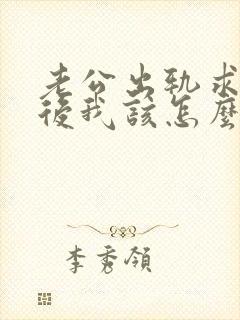 老公出軌求
後我該怎麼
李秀領